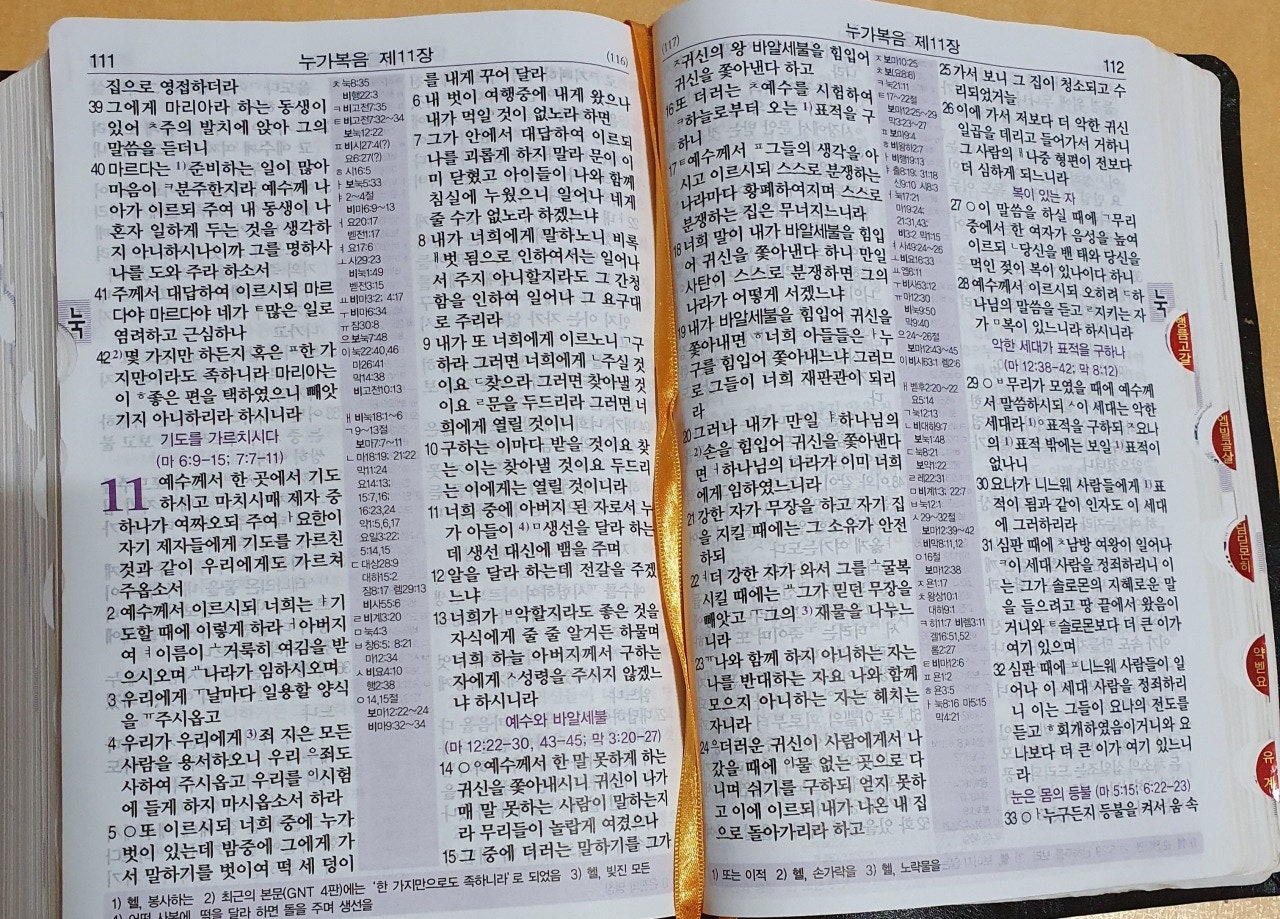 111
누가복음 제11장
(116)
집으로 영접하더라
39 그에게 마리아라 하는 동생이
있어 ㅊ주의 발치에 앉아 그의
말씀을 듣더니
40 마르다는 1)준비하는 일이 많아
마음이 ㅋ분주한지라 예수께 나
아가 이르되 주여 내 동생이 나
혼자 일하게 두는 것을 생각하
지 아니하시나이까 그를 명하사
나를 도와 주라 하소서
41 주께서 대답하여 이르시되 마르
다야 마르다야 네가 ㅌ많은 일로
염려하고 근심하나
42 2)몇 가지만 하든지 혹은 ㅍ한 가
지만이라도 족하니라 마리아는
이 ㅎ좋은 편을 택하였으니 빼앗
기지 아니하리라 하시니라
기도를 가르치시다
(마 6:9-15; 7:7-11)
11 예수께서 한 곳에서 기도
하시고 마치시매 제자 중
하나가 여짜오되 주여 ㅏ요한이
자기 제자들에게 기도를 가르친
것과 같이 우리에게도 가르쳐
주옵소서
2 예수께서 이르시되 너희는 ㅑ기
도할 때에 이렇게 하라 ㅓ아버지
여 ㅕ이름이 ㅗ거룩히 여김을 받
으시오며 ㅛ나라가 임하시오며
3 우리에게 ㅜ날마다 일용할 양식
을 ㅠ주시옵고
4 우리가 우리에게 3)죄 지은 모든
사람을 용서하오니 우리 ㅡ죄도
사하여 주시옵고 우리를 ㅣ시험
에 들게 하지 마시옵소서 하라
5 ○또 이르시되 너희 중에 누가
벗이 있는데 밤중에 그에게 가
서 말하기를 벗이여 떡 세 덩이
ㅊ 눅8:35
비행22:3
ㅋ 비고전7:35
ㅌ 비고전7:32~34
보눅12:22
ㅍ 비시27:4(?)
요6:27(?)
ㅎ 시16:5
ㅏ 보눅5:33
ㅑ 2~4절
비마6:9~13
ㅓ 요20:17
벧전1:17
ㅕ 요17:6
ㅗ 사29:23
비눅1:49
벧전3:15
ㅛ 비마3:2; 4:17
ㅜ 비마6:34
ㅠ 잠30:8
ㅡ 보눅7:48
ㅣ 눅22:40,46
마26:41
막14:38
비고전10:13
ㅐ 비눅18:1~6
ㄱ 9~13절
보마7:7~11
ㄴ 마18:19; 21:22
막11:24
요14:13;
15:7,16;
16:23,24
약1:5,6,17
요일3:22;
5:14,15
ㄷ 대상28:9
대하15:2
잠8:17 렘29:13
비사55:6
ㄹ 비계3:20
ㅁ 눅4:3
ㅂ 창6:5; 8:21
마12:34
ㅅ 비요4:10
행2:38
ㅇ 14,15절
보마12:22~24
비마9:32~34
를 내게 꾸어 달라
6 내 벗이 여행중에 내게 왔으나
내가 먹일 것이 없노라 하면
7 그가 안에서 대답하여 이르되
나를 괴롭게 하지 말라 문이 이
미 닫혔고 아이들이 나와 함께
침실에 누웠으니 일어나 네게
줄 수가 없노라 하겠느냐
8 내가 너희에게 말하노니 비록
ㅐ벗 됨으로 인하여서는 일어나
서 주지 아니할지라도 그 간청
함을 인하여 일어나 그 요구대
로 주리라
9 내가 또 너희에게 이르노니 ㄱ구
하라 그러면 너희에게 ㄴ주실 것
이요 ㄷ찾으라 그러면 찾아낼 것
이요 ㄹ문을 두드리라 그러면 너
희에게 열릴 것이니
10 구하는 이마다 받을 것이요 찾
는 이는 찾아낼 것이요 두드리
는 이에게는 열릴 것이니라
11 너희 중에 아버지 된 자로서 누
가 아들이 4)ㅁ생선을 달라 하는
데 생선 대신에 뱀을 주며
12 알을 달라 하는데 전갈을 주겠
느냐
13 너희가 ㅂ악할지라도 좋은 것을
자식에게 줄 줄 알거든 하물며
너희 하늘 아버지께서 구하는
자에게 ㅅ성령을 주시지 않겠느
냐 하시니라
예수와 바알세불
(마 12:22-30, 43-45; 막 3:20-27)
14 ○ㅇ예수께서 한 말 못하게 하는
귀신을 쫓아내시니 귀신이 나가
매 말 못하는 사람이 말하는지
라 무리들이 놀랍게 여겼으나
15 그 중에 더러는 말하기를 그가
1) 헬, 봉사하는 2) 최근의 본문(GNT 4판)에는 '한 가지만으로도 족하니라'로 되었음 3) 헬, 빚진 모든
4) 어떤 사본에, 떡을 달라 하면 돌을 주며 생선을
눅
(117)
누가복음 제11장
112
ㅈ귀신의 왕 바알세불을 힘입어
귀신을 쫓아낸다 하고
16 또 더러는 ㅊ예수를 시험하여
ㅋ하늘로부터 오는 1)표적을 구
하니
17 ㅌ예수께서 ㅍ그들의 생각을 아
시고 이르시되 스스로 분쟁하는
나라마다 황폐하여지며 스스로
분쟁하는 집은 무너지느니라
18 너희 말이 내가 바알세불을 힘입
어 귀신을 쫓아낸다 하니 만일
사탄이 스스로 분쟁하면 그의
나라가 어떻게 서겠느냐
19 내가 바알세불을 힘입어 귀신을
쫓아내면 ㅎ너희 아들들은 ㅏ누
구를 힘입어 쫓아내느냐 그러므
로 그들이 너희 재판관이 되리
라
20 그러나 내가 만일 ㅑ하나님의
2)손을 힘입어 귀신을 쫓아낸다
면 ㅓ하나님의 나라가 이미 너희
에게 임하였느니라
21 강한 자가 무장을 하고 자기 집
을 지킬 때에는 그 소유가 안전
하되
22 ㅕ더 강한 자가 와서 그를 ㅗ굴복
시킬 때에는 ㅛ그가 믿던 무장을
빼앗고 ㅜ그의 3)재물을 나누느
니라
23 ㅠ나와 함께 하지 아니하는 자는
나를 반대하는 자요 나와 함께
모으지 아니하는 자는 헤치는
자니라
24 ㅡ더러운 귀신이 사람에게서 나
갔을 때에 ㅣ물 없는 곳으로 다
니며 쉬기를 구하되 얻지 못하
고 이에 이르되 내가 나온 내 집
으로 돌아가리라 하고
ㅈ 보마10:25
ㅊ 보(요8:6)
ㅋ 눅21:11
ㅌ 17~22절
보마12:25~29
막3:23~27
ㅍ 보마9:4
ㅎ 비왕하2:7
ㅏ 비행19:13
ㅑ 출8:19; 31:18
신9:10 시8:3
ㅓ 눅17:21
마19:24;
21:31,43;
비3:2 막1:15
ㅕ 사49:24~26
ㅗ 비요16:33
ㅛ 엡6:11
ㅜ 비사53:12
ㅠ 마12:30
비눅9:50
막9:40
ㅡ 24~26절
보마12:43~45
ㅣ 비시63:1 렘2:6
ㅐ 벧후2:20~22
요5:14
ㄱ 눅12:13
ㄴ 비대하9:7
보눅1:48
ㄷ 눅8:21
보약1:22
ㄹ 레22:31
ㅁ 비계1:3; 22:7
ㅂ 눅12:1
ㅅ 29~32절
보마12:39~42
비막8:11,12
ㅇ 16절
보마12:38
ㅈ 욘1:17
ㅊ 왕상10:1
대하9:1
ㅋ 히11:7 비렘3:11
겔16:51,52
롬2:27
ㅌ 비마12:6
ㅍ 욘1:2
ㅎ 욘3:5
ㅏ 눅8:16 마5:15
막4:21
25 가서 보니 그 집이 청소되고 수
리되었거늘
26 이에 가서 저보다 더 악한 귀신
일곱을 데리고 들어가서 거하니
그 사람의 ㅐ나중 형편이 전보다
더 심하게 되느니라
복이 있는 자
27 ○이 말씀을 하실 때에 ㄱ무리
중에서 한 여자가 음성을 높여
이르되 ㄴ당신을 밴 태와 당신을
먹인 젖이 복이 있나이다 하니
28 예수께서 이르시되 오히려 ㄷ하
나님의 말씀을 듣고 ㄹ지키는 자
가 ㅁ복이 있느니라 하시니라
악한 세대가 표적을 구하나
(마 12:38-42; 막 8:12)
29 ○ㅂ무리가 모였을 때에 예수께
서 말씀하시되 ㅅ이 세대는 악한
세대라 ㅇ표적을 구하되 ㅈ요나
의 1)표적 밖에는 보일 1)표적이
없나니
30 요나가 니느웨 사람들에게 1)표
적이 됨과 같이 인자도 이 세대
에 그러하리라
31 심판 때에 ㅊ남방 여왕이 일어나
ㅋ이 세대 사람을 정죄하리니 이
는 그가 솔로몬의 지혜로운 말
을 들으려고 땅 끝에서 왔음이
거니와 ㅌ솔로몬보다 더 큰 이가
여기 있으며
32 심판 때에 ㅍ니느웨 사람들이 일
어나 이 세대 사람을 정죄하리
니 이는 그들이 요나의 전도를
듣고 ㅎ회개하였음이거니와 요
나보다 더 큰 이가 여기 있느니
라
눈은 몸의 등불 (마 5:15; 6:22-23)
33 ○ㅏ누구든지 등불을 켜서 움 속
1) 또는 이적 2) 헬, 손가락을 3) 헬, 노략물을
눅
행롬고갈
엡빌골살
딤딛몬히
약벧요
유계